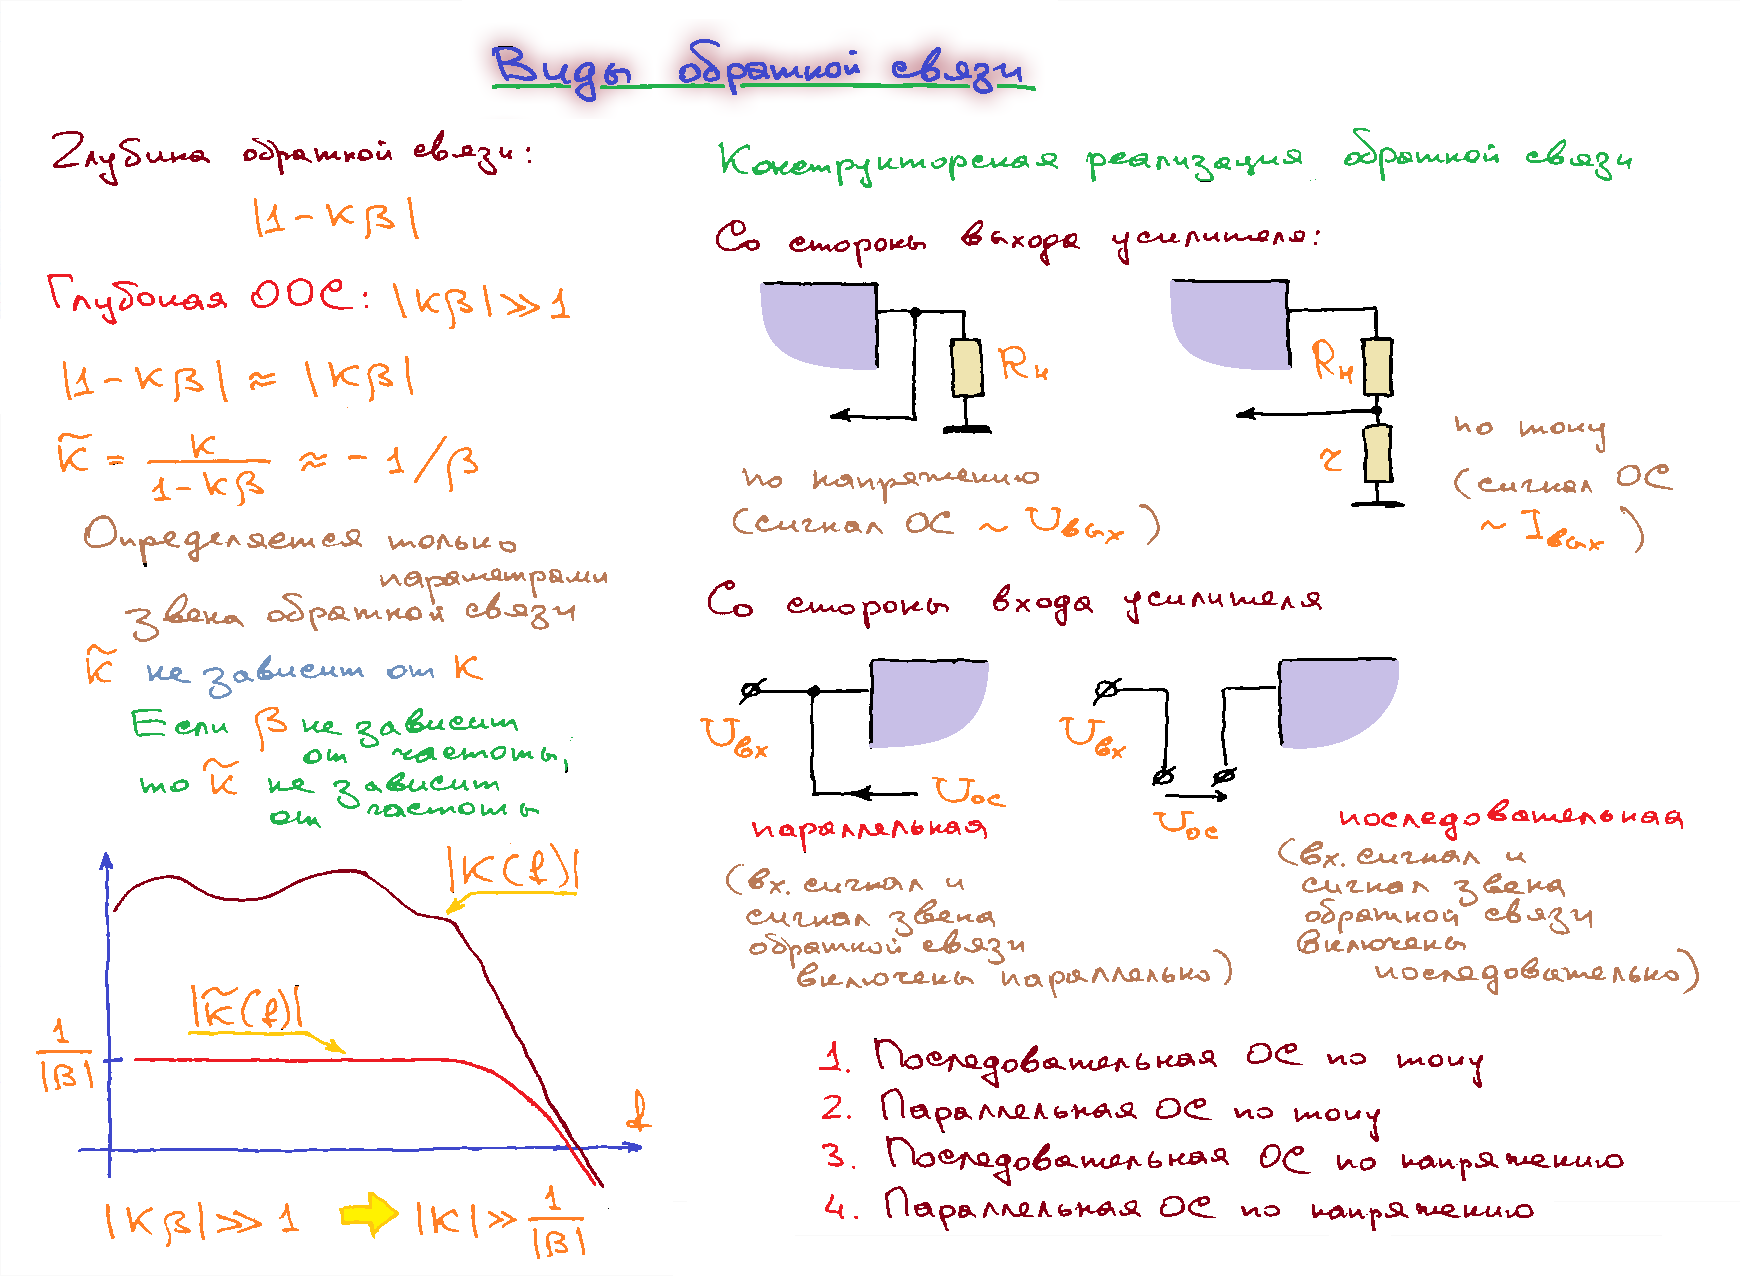 Виды обратной связи
Глубина обратной связи:
|1 - Kβ|
Глубокая ООС: |Kβ| ≫ 1
|1 - Kβ| ≈ |Kβ|
K̃ = K / (1 - Kβ) ≈ - 1/β
Определяется только
параметрами
звена обратной связи
K̃ не зависит от K
Если β не зависит
от частоты,
то K̃ не зависит
от частоты
|K(f)|
|K̃(f)|
1/|β|
f
|Kβ| ≫ 1 ⇒ |K| ≫ 1/|β|
Конструкторская реализация обратной связи
Со стороны выхода усилителя:
Rн
по напряжению
(сигнал ОС ~ Uвых)
Rн
r
по току
(сигнал ОС
~ Iвых)
Со стороны входа усилителя
Uвх
Uос
параллельная
(вх. сигнал и
сигнал звена
обратной связи
включены параллельно)
Uвх
Uос
последовательная
(вх. сигнал и
сигнал звена
обратной связи
включены
последовательно)
1. Последовательная ОС по току
2. Параллельная ОС по току
3. Последовательная ОС по напряжению
4. Параллельная ОС по напряжению